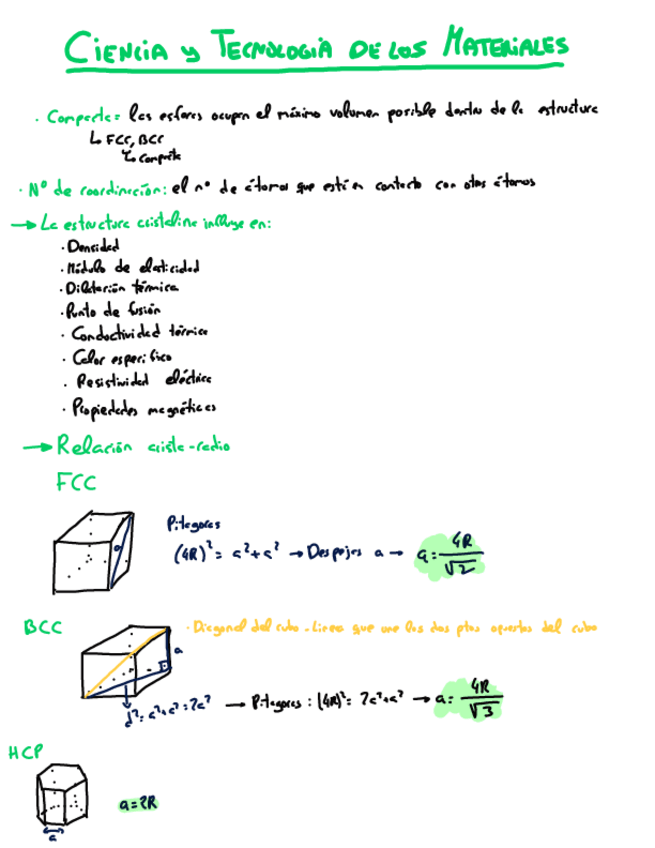 CIENCIA Y TECNOLOGIA DE LOS MATERIALES
· Compacta = las esferas ocupan el máximo volumen posible dentro de la estructura
↳ FCC, BCC
↳ compacta
· Nº de coordinación: el nº de átomos que está en contacto con otros átomos
→ La estructura cristalina influye en:
· Densidad
· Módulo de elasticidad
· Dilatación térmica
· Punto de fusión
· Conductividad térmica
· Calor específico
· Resistividad eléctrica
· Propiedades magnéticas
→ Relación arista-radio
FCC
Pitagoras
(4R)² = a² + a² → Despejas a → a = 4R/√2
BCC
· Diagonal del cubo - Linea que une los dos ptos opuestos del cubo
a
d² = a² + a² = 2a² → Pitagoras: (4R)² = 2a² + a² → a = 4R/√3
HCP
a = 2R
a